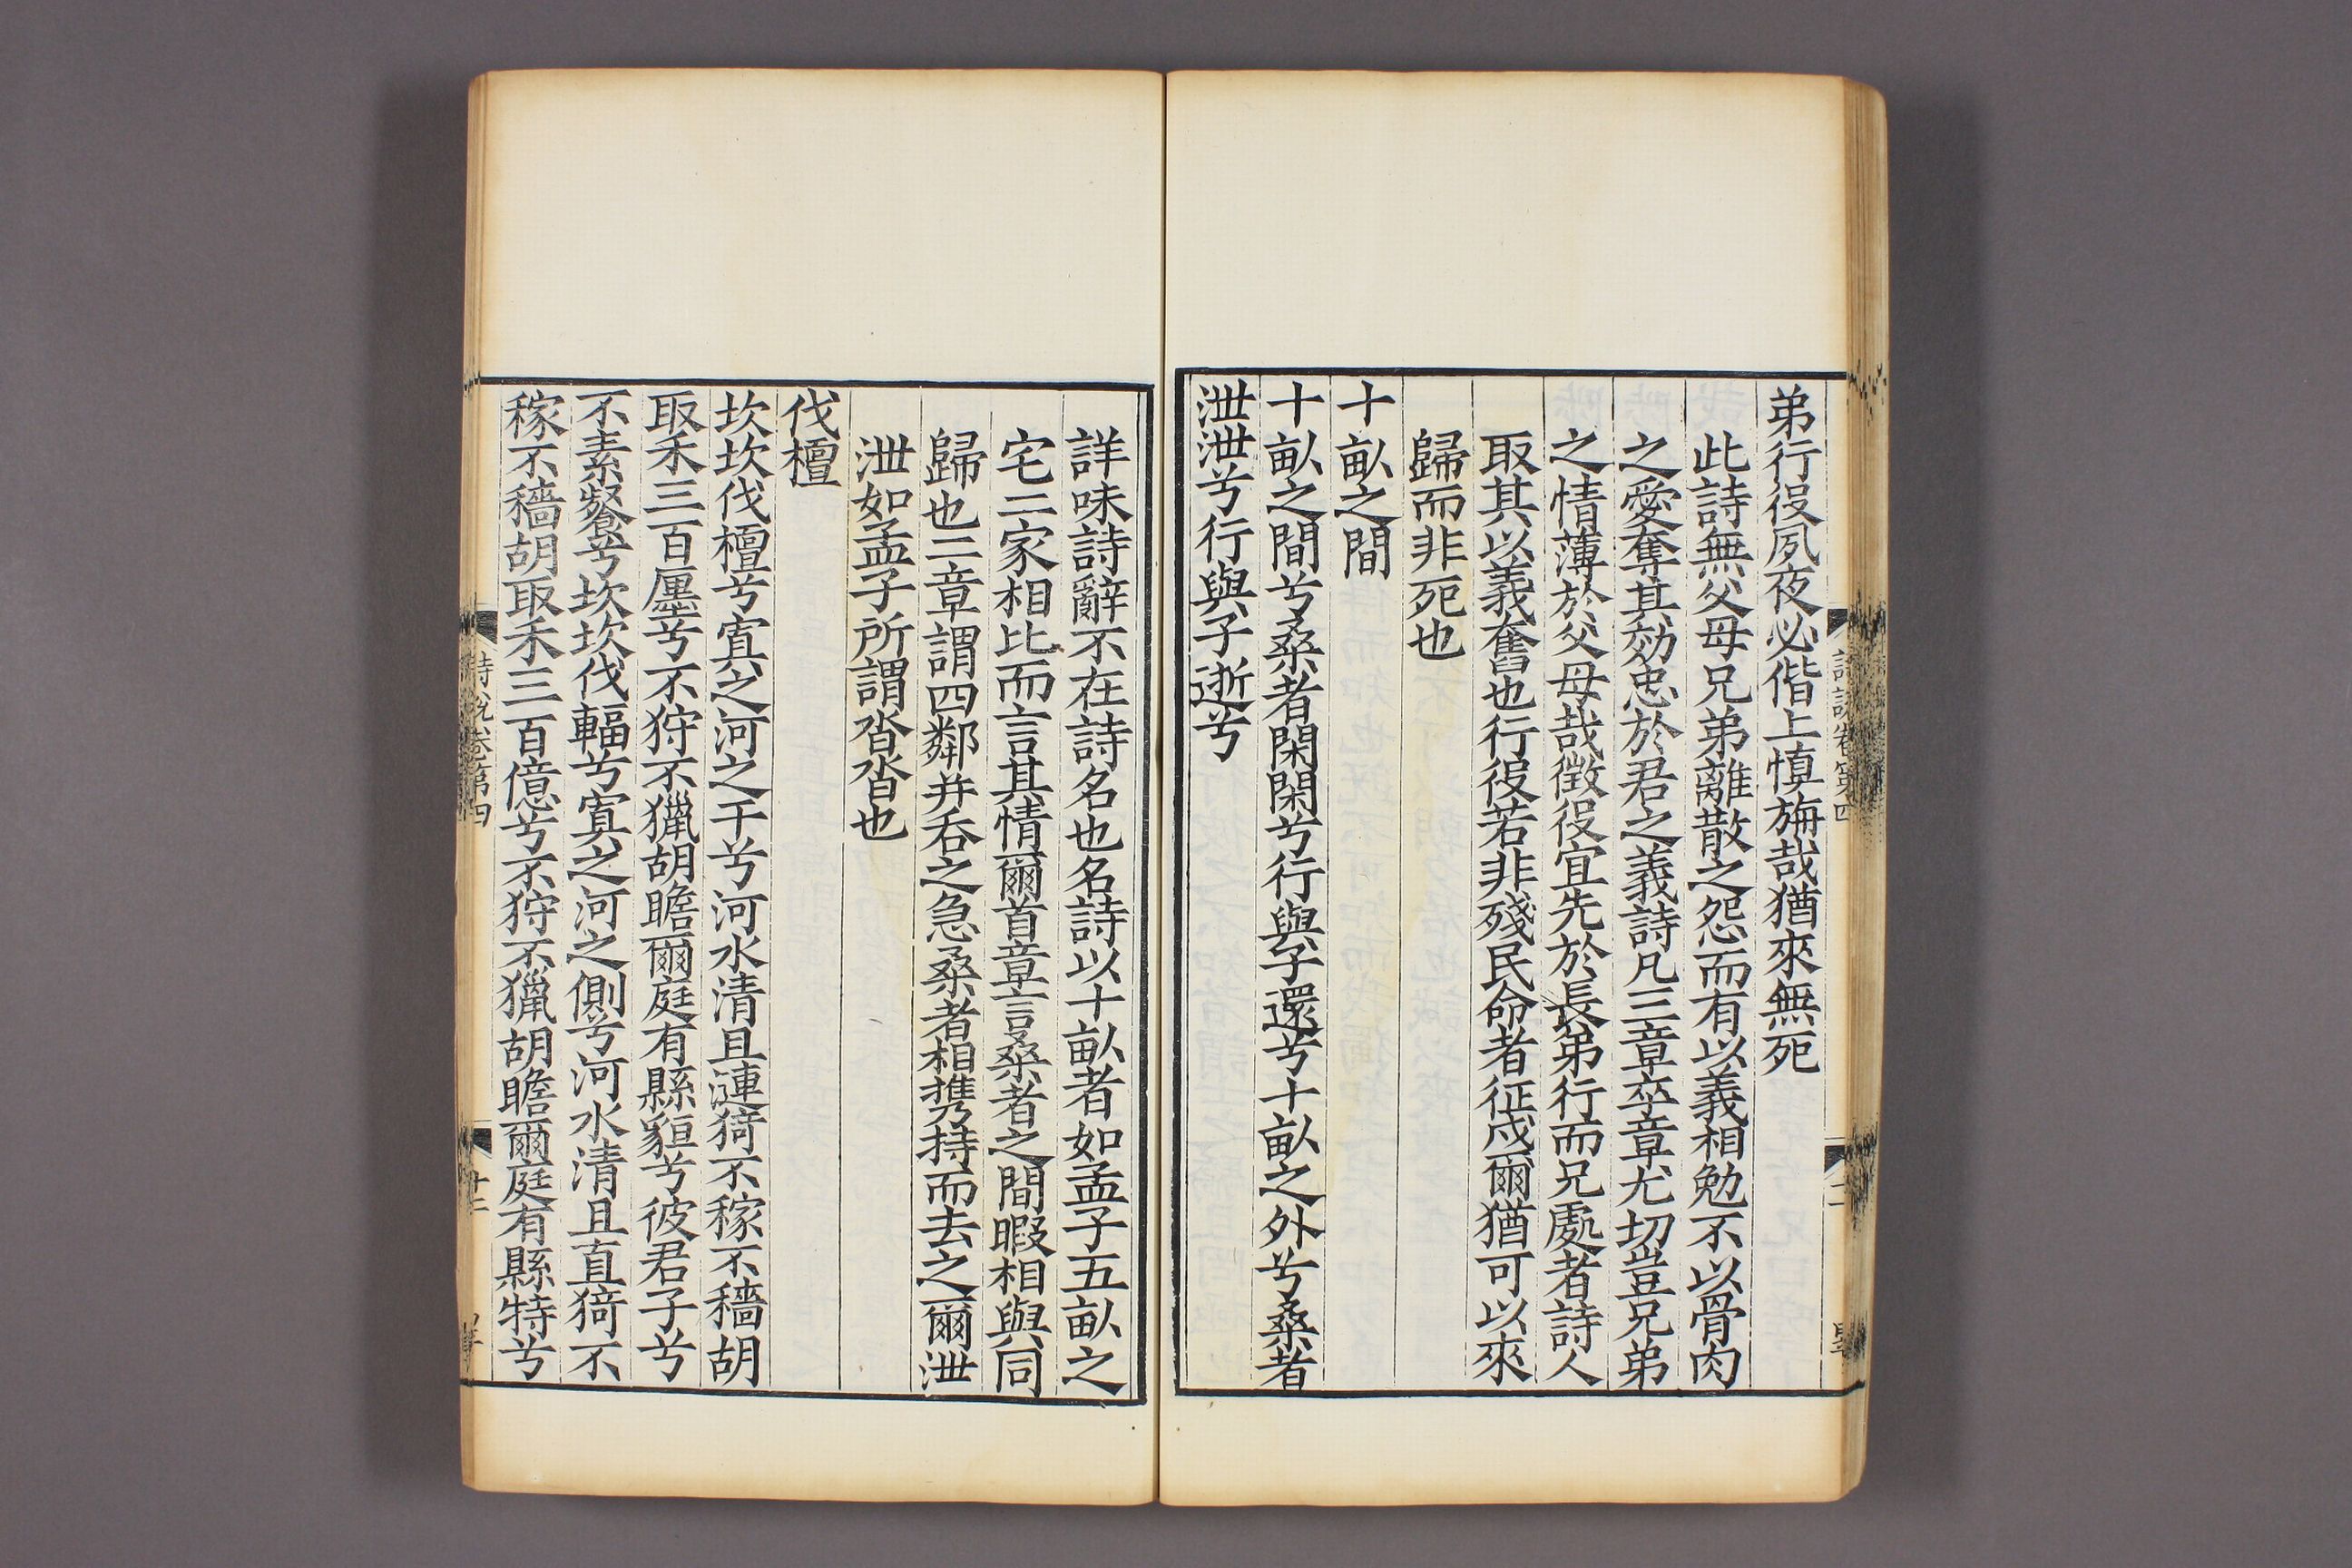 弟行役夙夜必偕上慎旃哉猶來無死
此詩無父母兄弟離散之怨而有以義相勉不以骨肉
之愛奪其効忠於君之義詩凡三章卒章尤切豈兄弟
之情薄於父母哉徵役宜先於長弟行而兄處者詩人
取其以義奮也行役若非殘民命者征戍爾猶可以來
歸而非死也
十畝之間
十畝之間兮桑者閑閑兮行與子還兮十畝之外兮桑者
泄泄兮行與子逝兮
詳味詩辭不在詩名也名詩以十畝者如孟子五畝之
宅二家相比而言其情爾首章言桑者之間暇相與同
歸也二章謂四鄰并吞之急桑者相攜持而去之爾泄
泄如孟子所謂沓沓也
伐檀
坎坎伐檀兮寘之河之干兮河水清且漣猗不稼不穡胡
取禾三百廛兮不狩不獵胡瞻爾庭有縣貆兮彼君子兮
不素餐兮坎坎伐輻兮寘之河之側兮河水清且直猗不
稼不穡胡取禾三百億兮不狩不獵胡瞻爾庭有縣特兮
詩說卷第四